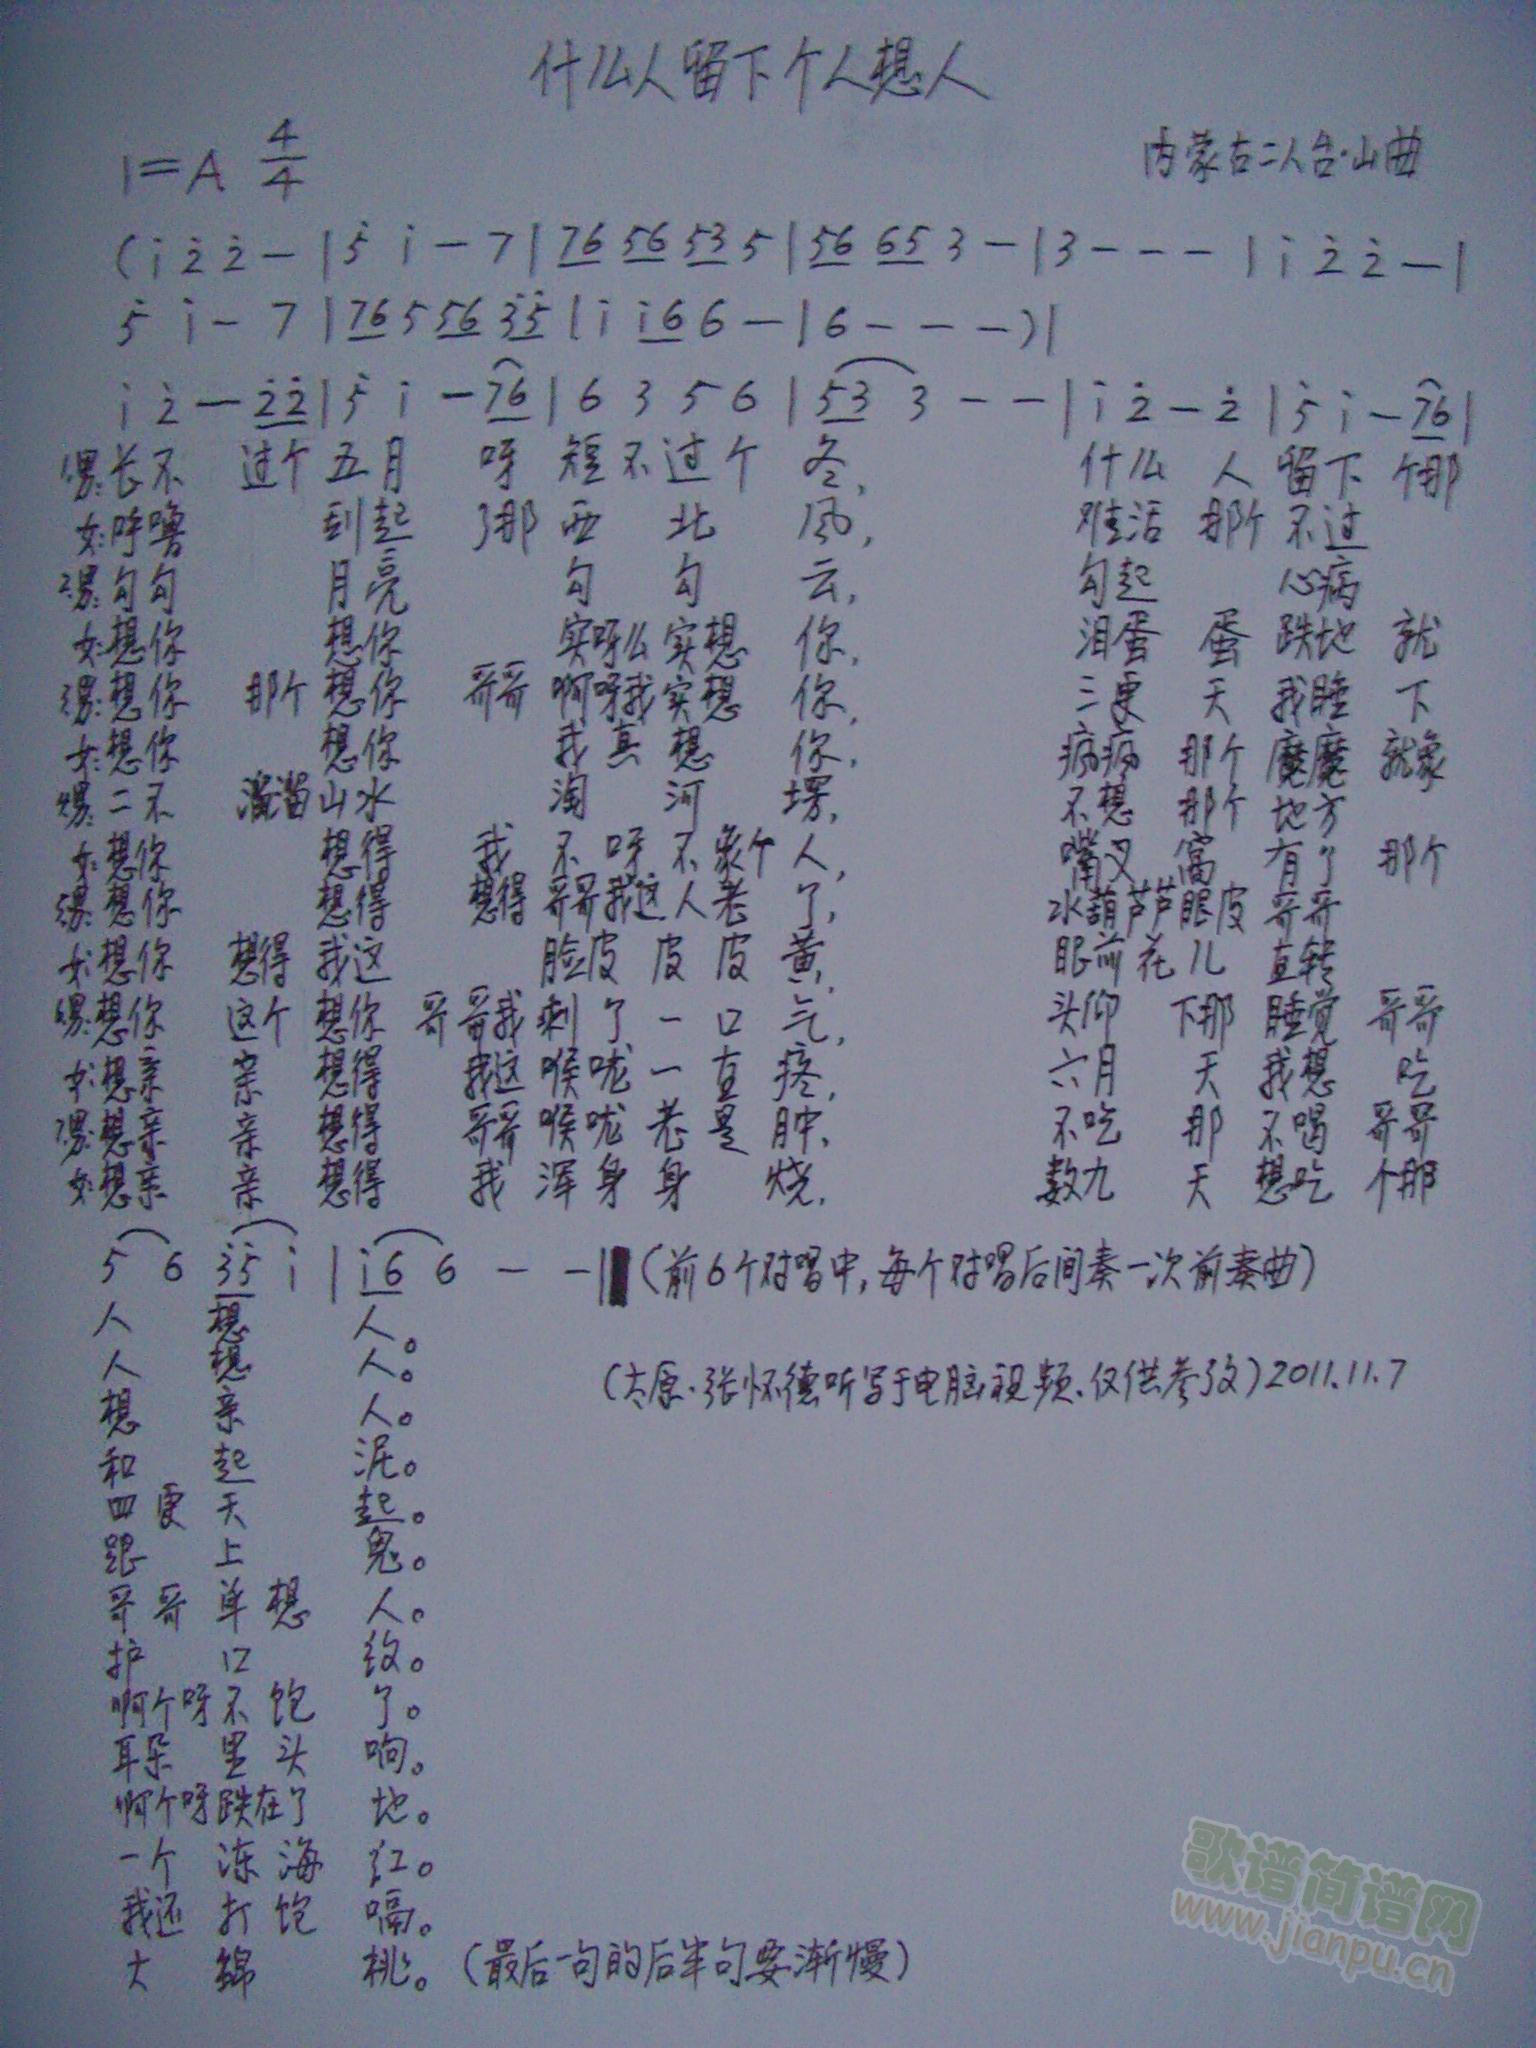 什么人留下个人想人
1=A 4/4
内蒙古二人台·山曲
(i̇ 2̇ 2̇ — | 5̇ i̇ — 7 | 76 56 53 5 | 56 65 3 — | 3 — — — | i̇ 2̇ 2̇ — |
5̇ i̇ — 7 | 76 5 56 3̇5̇ | i̇ i̇6 6 — | 6 — — — ) |
i̇ 2̇ — 2̇2̇ | 5̇ i̇ — 76 | 6 3 5 6 | 53 3 — — | i̇ 2̇ — 2̇ | 5̇ i̇ — 76 |
男:长不 过个 五月 呀 短不过个 冬, 什么 人 留下 个那
女:呼噜 到起 了那 西 北 风, 难活 那个 不过
男:勾勾 月亮 勾 勾 云, 勾起 心病
女:想你 想你 实呀么实想 你, 泪蛋 蛋 跌地 就
男:想你 那个 想你 哥哥 啊呀我实想 你, 三更 天 我睡 下
女:想你 想你 我真想 你, 病病 那个 魔魔 就象
男:二不 溜溜 山水 淘 河 塄, 不想 那个 地方
女:想你 想得 我 不呀不象个 人, 嘴叉 窝 有了 那个
男:想你 想得 想得 哥哥我这人老 了, 水葫芦芦眼皮 哥哥
女:想你 想得 我这 脸皮 皮皮 黄, 眼前 花儿 直转
男:想你 这个 想你 哥哥我 剩了一口 气, 头仰 下那 睡觉 哥哥
女:想亲 亲 想得 我这 喉咙一直 疼, 六月 天 我想 吃
男:想亲 亲 想得 哥哥 喉咙老是 肿, 不吃 那 不喝 哥哥
女:想亲 亲 想得 我 浑身身 烧, 数九 天 想吃 个那
5 6 3̇5̇ i̇ | i̇6 6 — — ‖ (前6个对唱中,每个对唱后间奏一次前奏曲)
人 想 人。
人 想 人。
(太原·张怀德听写于电脑视频.仅供参考)2011.11.7
想 亲 人。
和 起 泥。
四更 天 起。
跟 上 鬼。
哥哥 单想 人。
护 口 纹。
啊个呀不饱 了。
耳朵 里头 响。
啊个呀跌在了 地。
一个 冻海 红。
我还 打饱 嗝。
大 绵 桃。(最后一句的后半句要渐慢)
歌谱简谱网
www.jianpu.cn